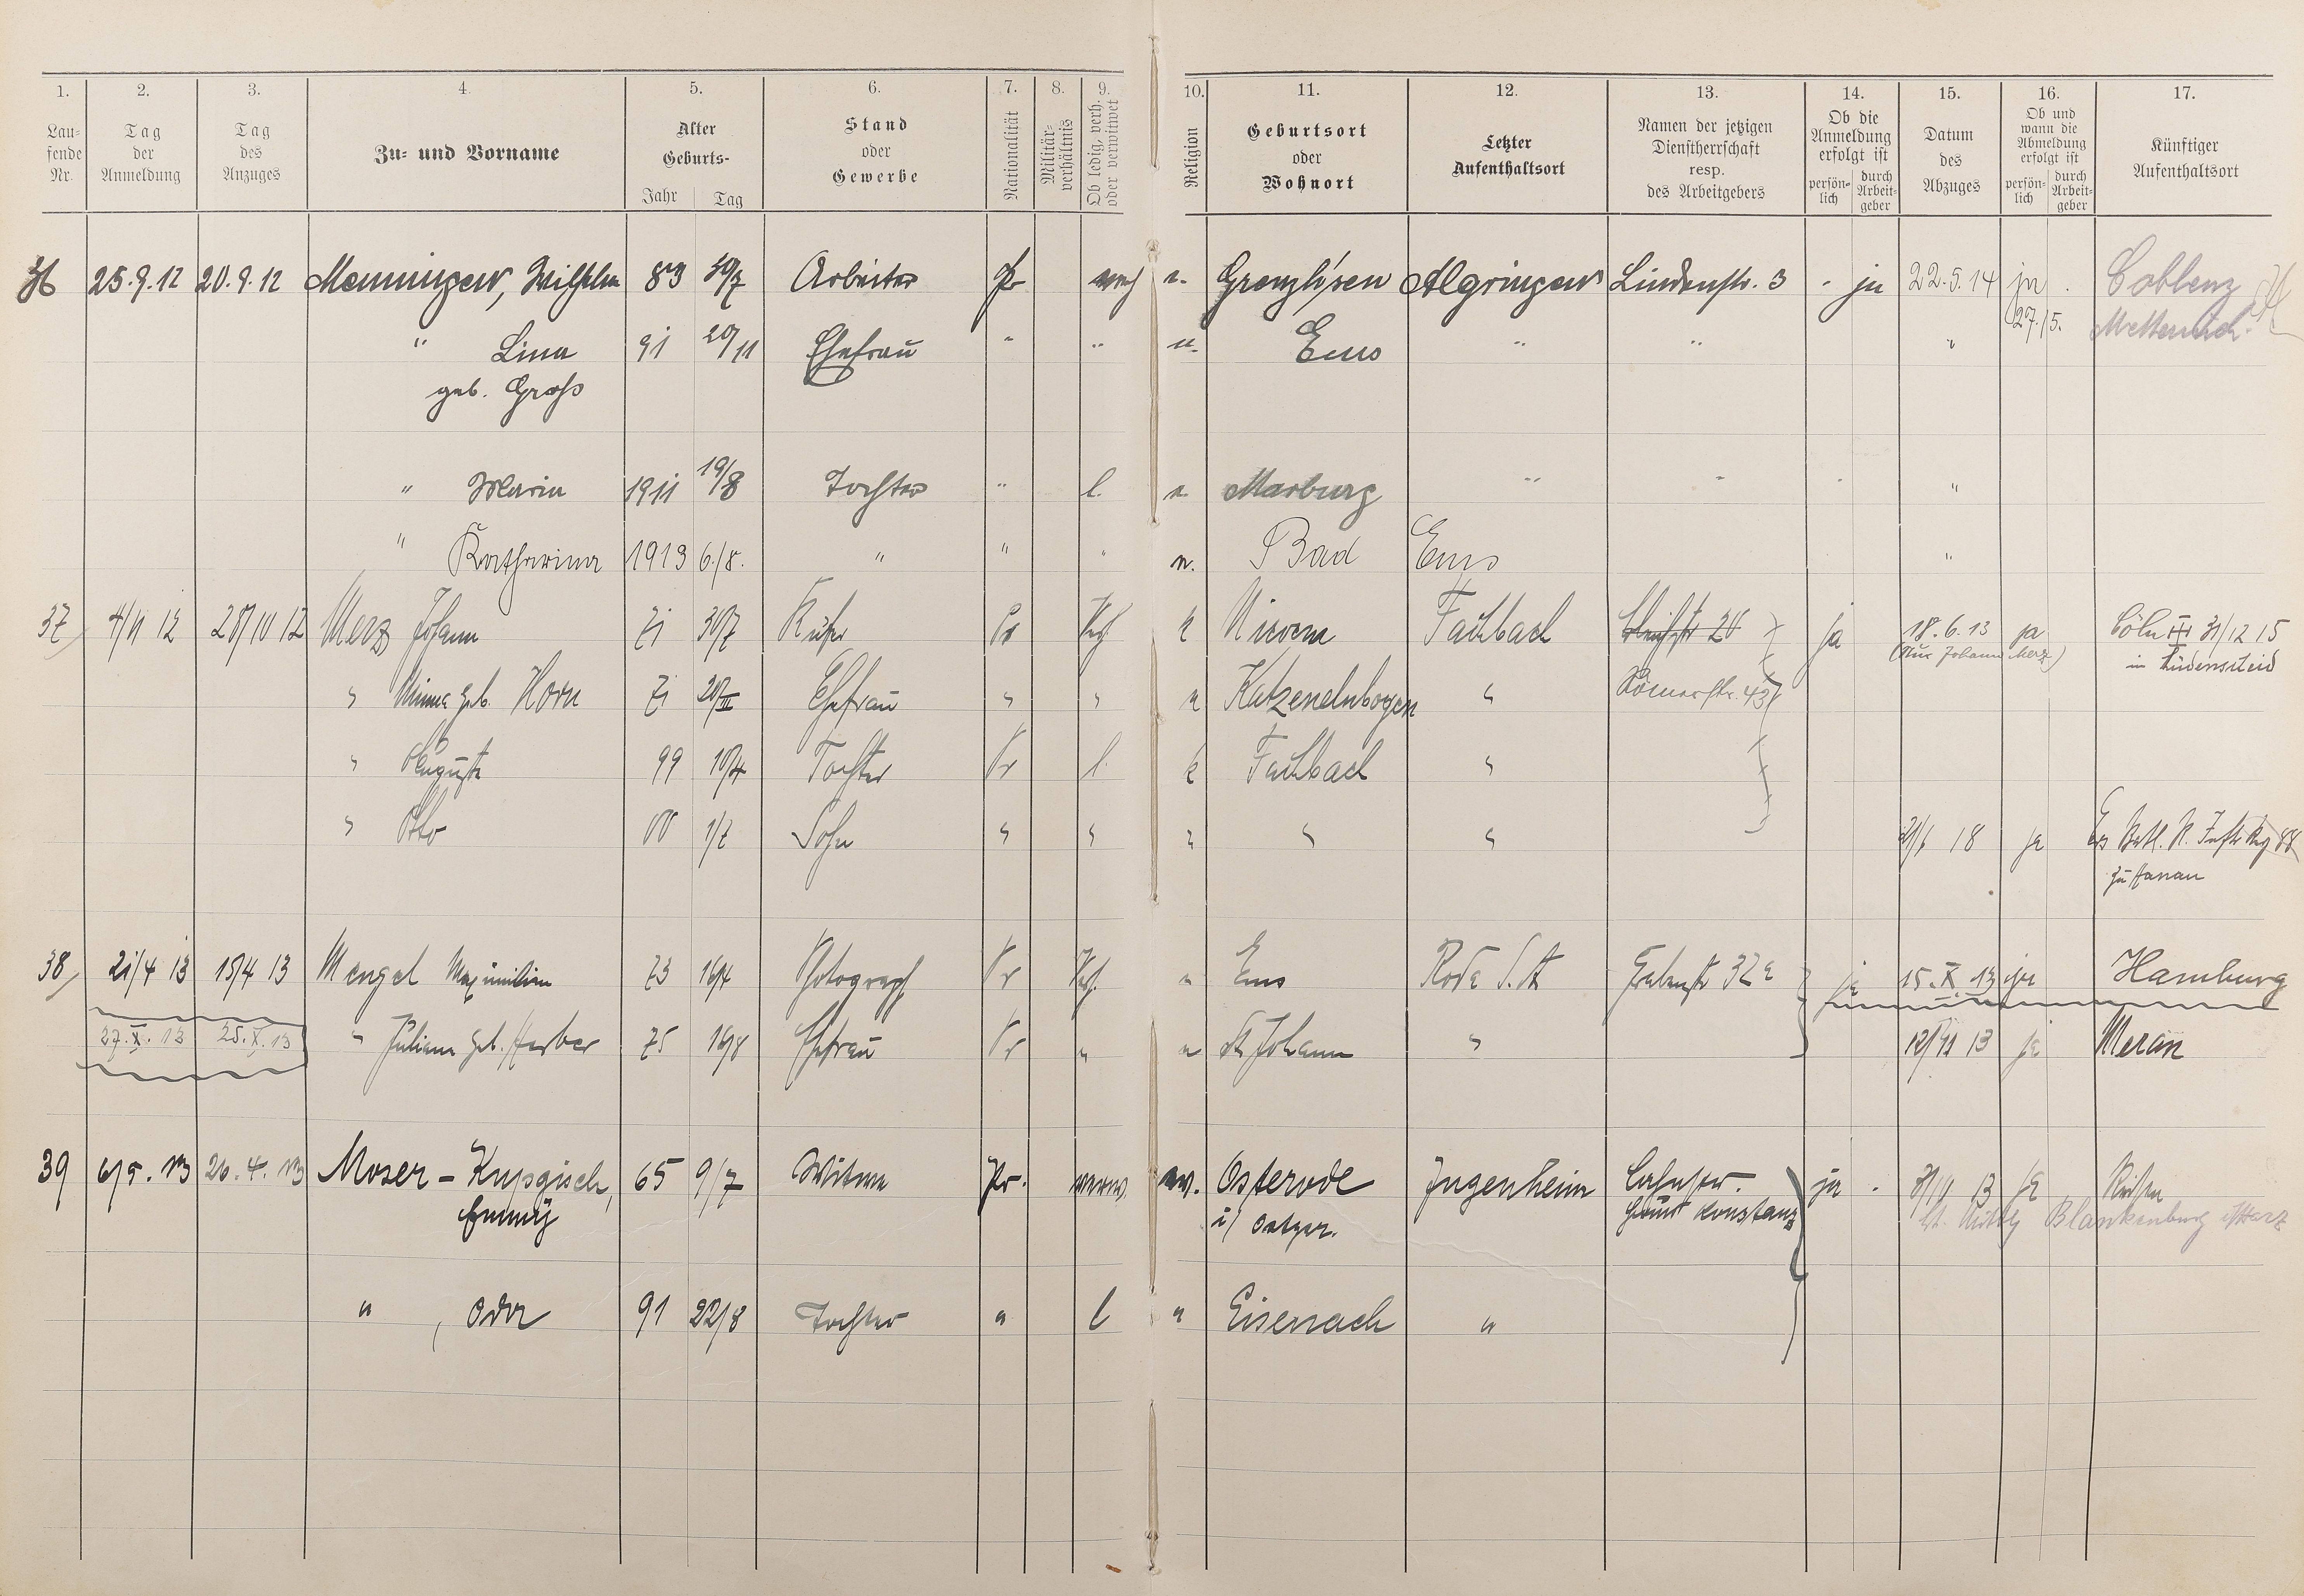 1. 2. 3. 4. 5. 6. 7. 8. 9. 10. 11. 12. 13. 14. 15. 16. 17.
Lau-fende Nr. Tag der Anmeldung Tag des Anzuges Zu- und Vorname Alter Geburts- Jahr Tag Stand oder Gewerbe Nationalität Militär-verhältnis Ob ledig, verh. oder verwitwet Religion Geburtsort oder Wohnort Letzter Aufenthaltsort Namen der jetzigen Dienstherrschaft resp. des Arbeitgebers Ob die Anmeldung erfolgt ist persön-lich durch Arbeit-geber Datum des Abzuges Ob und wann die Abmeldung erfolgt ist persön-lich durch Arbeit-geber Künftiger Aufenthaltsort
36 25.9.12 20.9.12 Wilhelm 83 30/7 Arbeiter Pr Algringen Lindenstr. 3 ja 22.5.14 ja Coblenz
" Lina 91 20/11 Ehefrau " " " Ems " " " 27./5. Metternich
geb. Groß
" Maria 1911 19/8 Tochter " l. Marburg " " "
" Katharina 1913 6./8. " " " Bad Ems "
37 4/11 12 28/10 12 Merz Johann 71 30/7 Küfer Pr Vh k Nievern Fachbach 20 ja 18.6.13 ja Cöln III 31/12 15
(Nur Johann Merz) in Lüdenscheid
" Minna geb. Horn 71 20/III Ehefrau " " Katzenelnbogen " Römerstr. 45
" Auguste 99 10/4 Tochter Pr l. k Fachbach "
" Otto 00 1/7 Sohn " " " " " 18 ja Ers Batl. R. Inftr Reg 88
zu Hanau
38 21/4 13 15/4 13 Mengel Maximilian 73 16/4 Photograph Pr Vh. Ems Roda S.A Grabenstr 32a ja 15.X.13 ja Hamburg
27.X.13 25.X.13 " Juliane geb. Herber 75 16/8 Ehefrau Pr " St Johann " 12/11 13 ja Meran
39 6/5.13 26.4.13 Moser - 65 9/7 Witwe Pr. verw. ev. Osterode Jugenheim ja 13 ja
Emmy i/ Ostpr. Konstanz Blankenburg i/Harz
" , 91 22/8 Tochter " l " Eisenach "